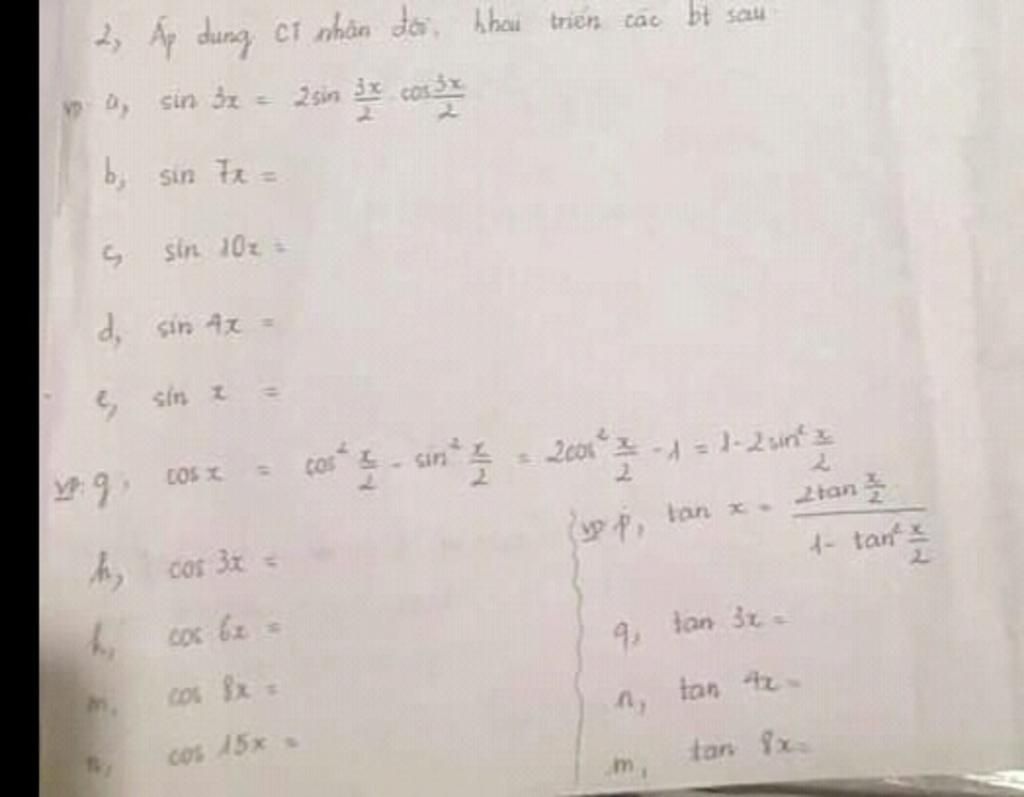 2, Áp dụng CT nhân đôi, khai triển các bt sau
VD a, sin 3x = 2sin 3x/2 cos 3x/2
b, sin 7x =
c, sin 10x =
d, sin 4x =
e, sin x =
VD: g, cos x = cos² x/2 - sin² x/2 = 2cos² x/2 - 1 = 1 - 2sin² x/2
h, cos 3x =
k, cos 6x =
m, cos 8x =
n, cos 15x =
VD p, tan x = 2tan x/2 / 1 - tan² x/2
q, tan 3x =
n, tan 4x =
m, tan 8x =